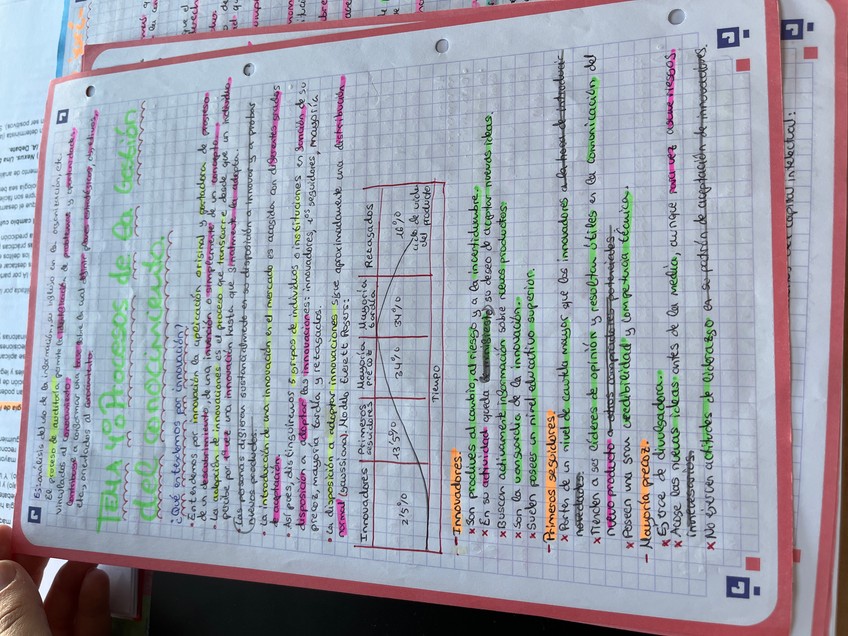 Es análisis del uso de la información, su influjo en la organización, etc
El proceso de auditoría permite la identificación de problemas y oportunidades
vinculados al conocimiento.
Contribuye a conformar una base sobre la cual definir planes estratégicos, objetivos
etc, orientados al conocimiento.
TEMA 4º: Procesos de la Gestión
del conocimiento.
¿Qué entendemos por innovación?
• Entendemos por innovación la aplicación original y portadora de progreso
de un descubrimiento, de una invención o simplemente de un concepto.
• La adopción de innovaciones es el proceso que transcurre desde que un individuo
percibe por primera vez una innovación hasta que finalmente la adopta.
Las personas difieren sustancialmente en su disposición a innovar y a probar
nuevos productos.
• La introducción de una innovación en el mercado es acogida con diferentes grados
de aceptación.
• Así pues, distinguiremos 5 grupos de individuos o instituciones en función de su
disposición a adoptar las innovaciones: innovadores, 1os seguidores, mayoría
precoz, mayoría tardía y retrasados.
• La disposición a adoptar innovaciones sigue aproximadamente una distribución
normal (gaussiana). Modelo Everett Rogers:
Innovadores | Primeros seguidores | Mayoría precoz | Mayoría tardía | Retrasados
2'5% | 13'5% | 34% | 34% | 16%
ciclo de vida
del producto
Tiempo
- Innovadores.
× Son proclives al cambio, al riesgo y a la incertidumbre.
× En su actividad queda su deseo de aceptar nuevas ideas.
× Buscan activamente información sobre nuevos productos.
× Son la vanguardia de la innovación.
× Suelen poseer un nivel educativo superior.
- Primeros seguidores.
× Parten de un nivel de cautela mayor que los innovadores a la hora de
novedades.
× Tienden a ser líderes de opinión y resultan útiles en la comunicación del
nuevo producto a otros compradores potenciales.
× Poseen una gran credibilidad y competencia técnica.
- Mayoría precoz.
× Ejerce de divulgadora.
× Acoge las nuevas ideas antes de la media, aunque rara vez asume riesgos
innecesarios.
× No ejercen actitudes de liderazgo en su patrón de aceptación de innovaciones.
del capital intelectual: